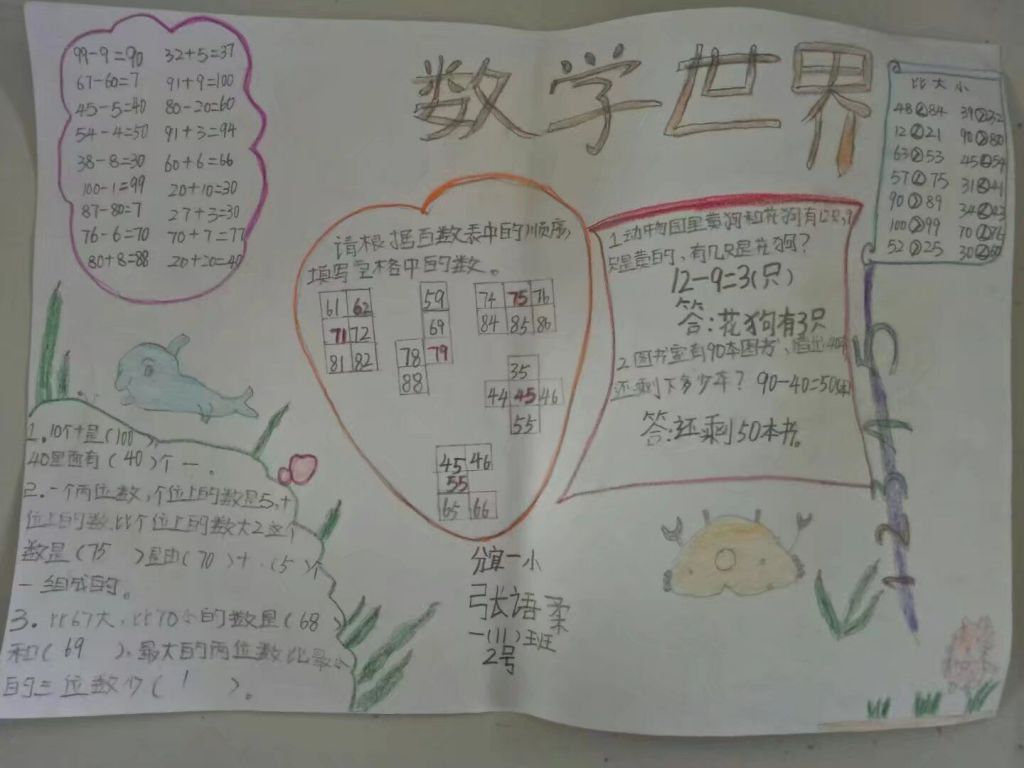 数学世界
99-9=90 32+5=37
67-60=7 91+9=100
45-5=40 80-20=60
54-4=50 91+3=94
38-8=30 60+6=66
100-1=99 20+10=30
87-80=7 27+3=30
76-6=70 70+7=77
80+8=88 20+20=40
请根据百数表中的顺序,
填写空格中的数。
61 62
71 72
81 82
59
69
78 79
88
74 75 76
84 85 86
35
44 45 46
55
45 46
55
65 66
1.动物园里黄狗和花狗有12只,9
只是黄的,有几只是花狗?
12-9=3(只)
答:花狗有3只
2.图书室有90本图书,借出40本
还剩下多少本? 90-40=50(本)
答:还剩50本书。
比大小
48 84 39 32
12 21 90 80
63 53 45 54
57 75 31
90 89 34
100 99 70 76
52 25 30
1.10个十是(100)
40里面有(40)个一。
2.一个两位数,个位上的数是5,十
位上的数比个位上的数大2这个
数是(75)是由(70)十、(5)个
一组成的。
3.比67大,比70小的数是(68)
和(69),最大的两位数比最小
的三位数少(1)。
分宜一小
张语柔
一(11)班
2号
1 2 3 4 5